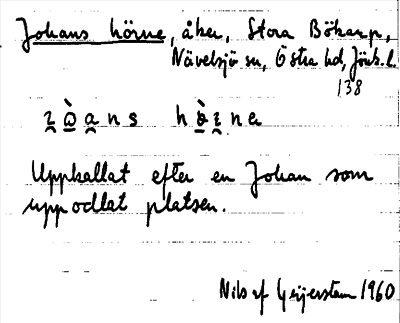 Johans hörne, åker, Stora Bökarp,
Nävelsjö sn, Östra hd, Jönk. l.
138
Uppkallat efter en Johan som
uppodlat platsen.
Nils af Geijerstam 1960